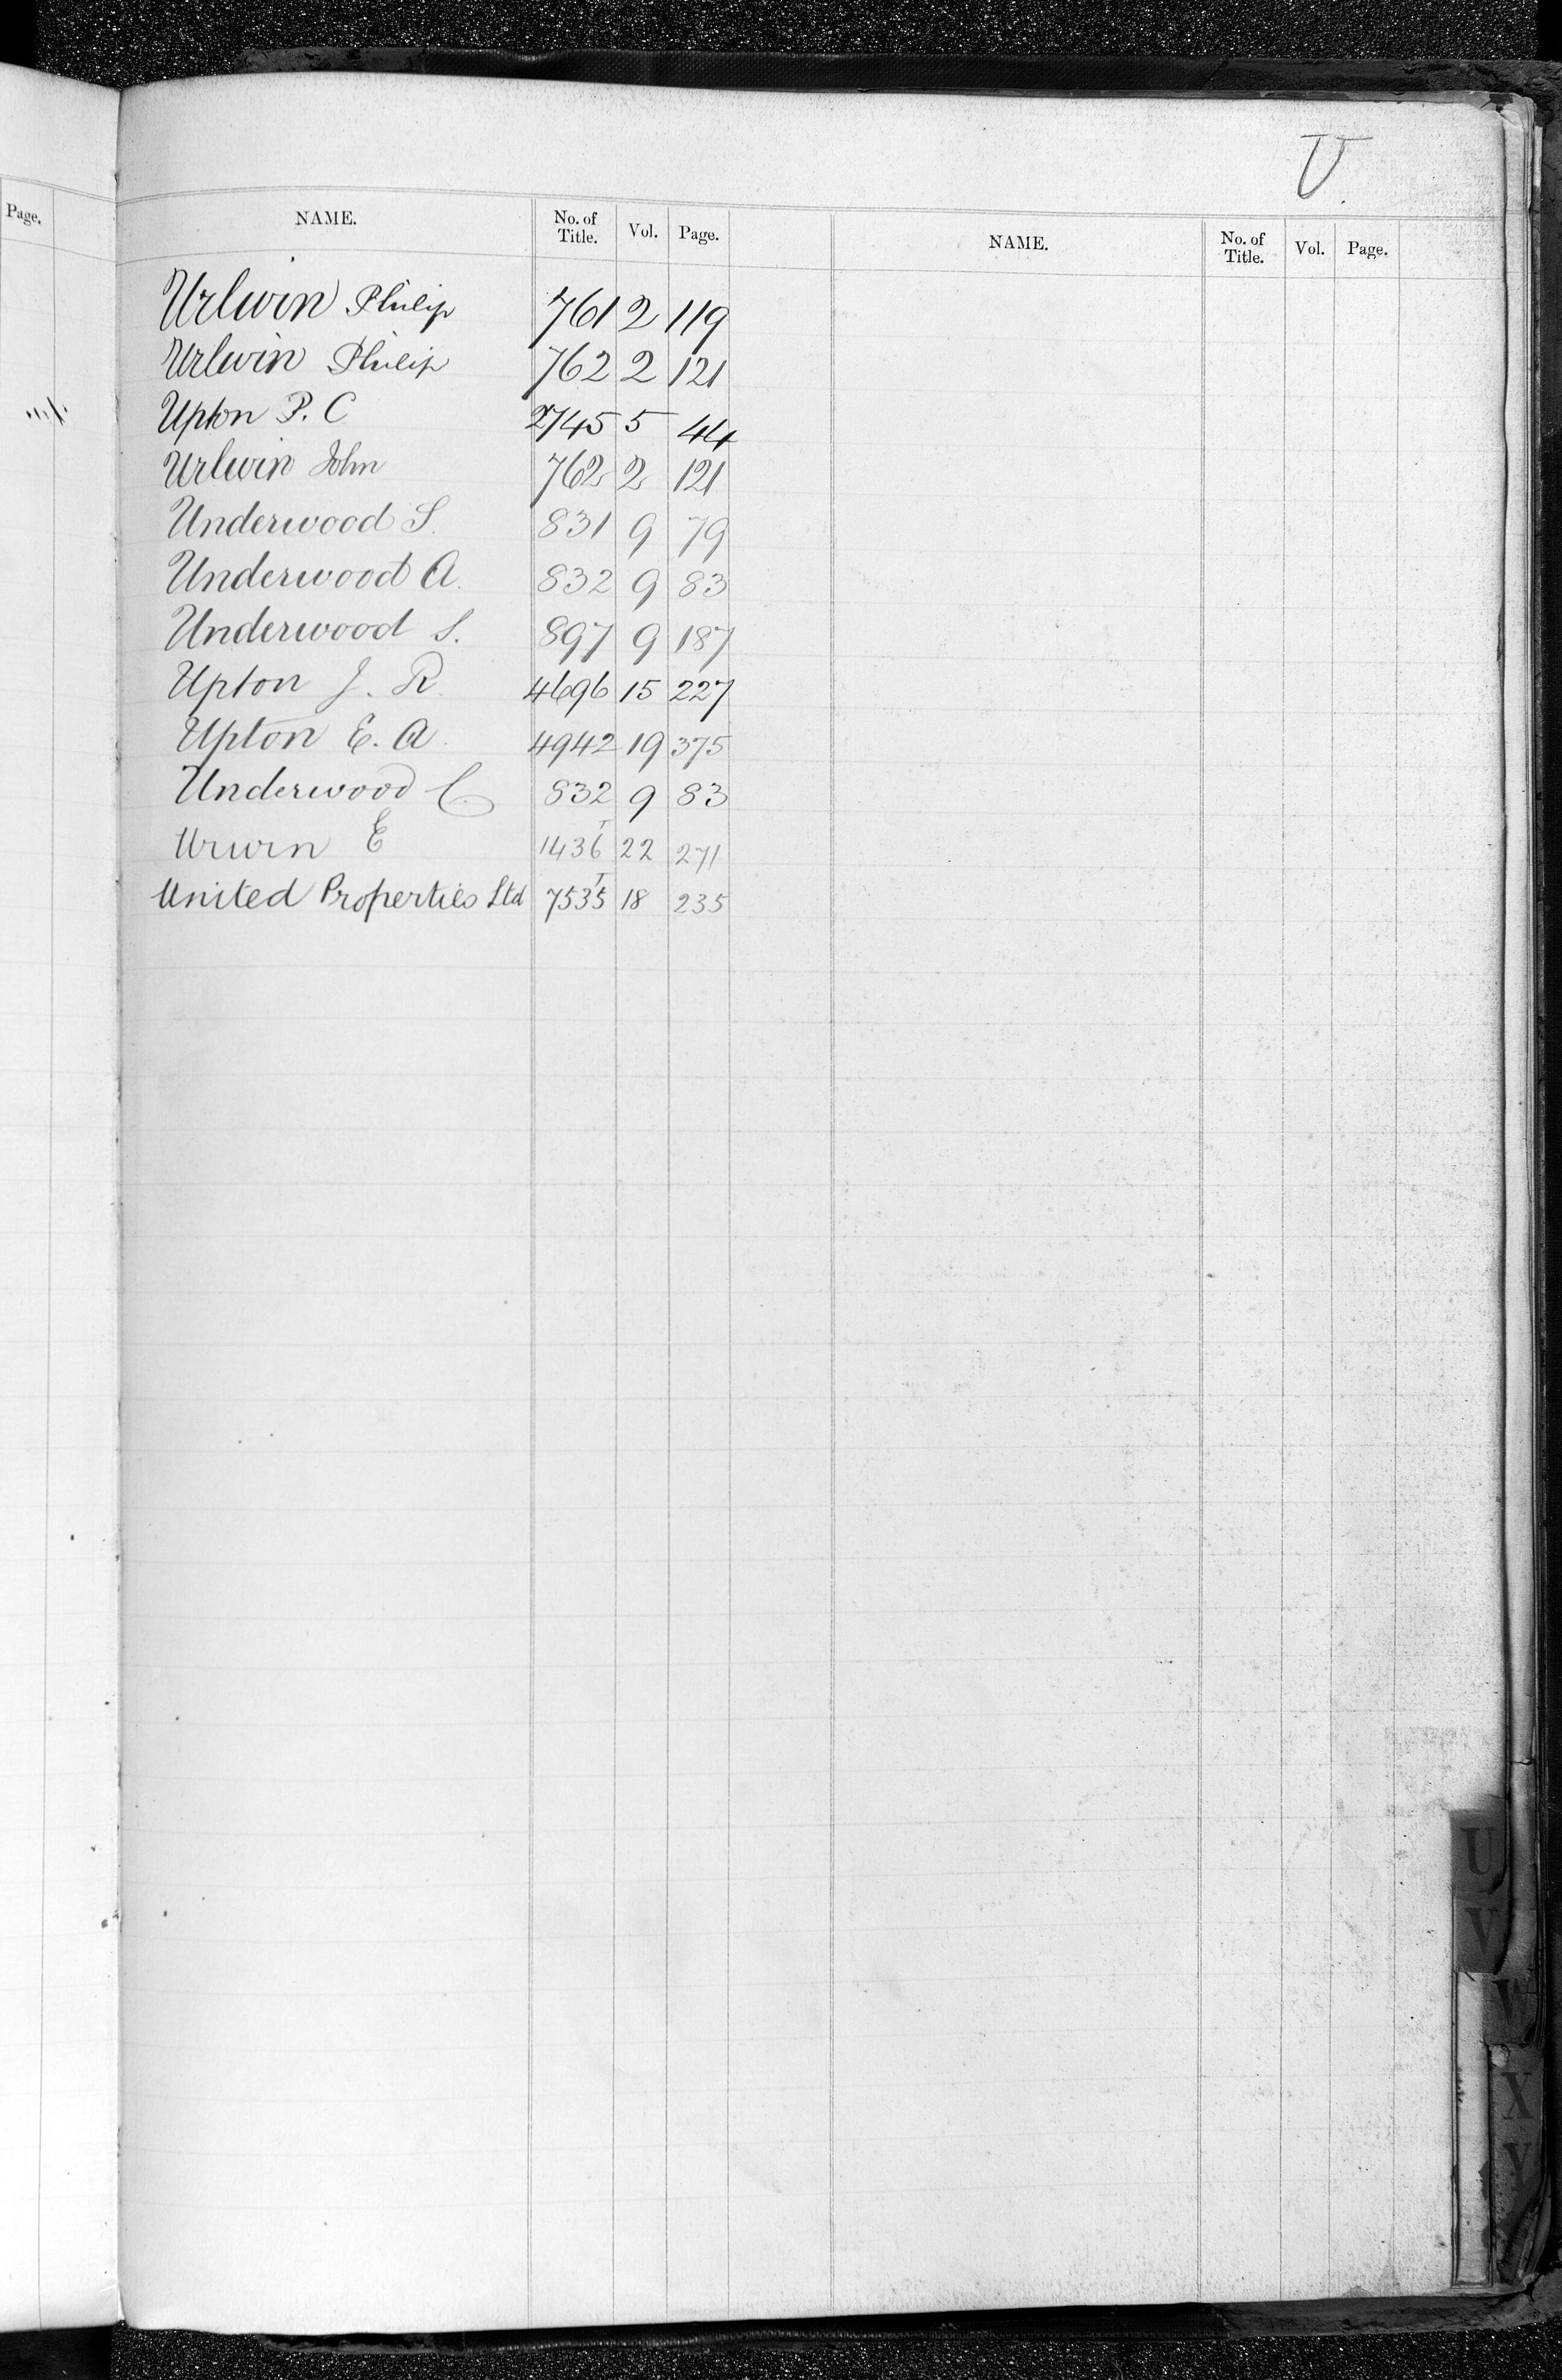 U
Page.
NAME. No. of Title. Vol. Page. NAME. No. of Title. Vol. Page.
Urlwin Philip 761 2 119
Urlwin Philip 762 2 121
Upton P. C 2745 5 44
Urlwin John 762 2 121
Underwood S. 831 9 79
Underwood A. 832 9 83
Underwood S. 897 9 187
Upton J. R. 4696 15 227
Upton E. A. 4942 19 375
Underwood C. 832 9 83
Urwin E 1436 22 271
United Properties Ltd 7535 18 235
U
V
W
X
Y